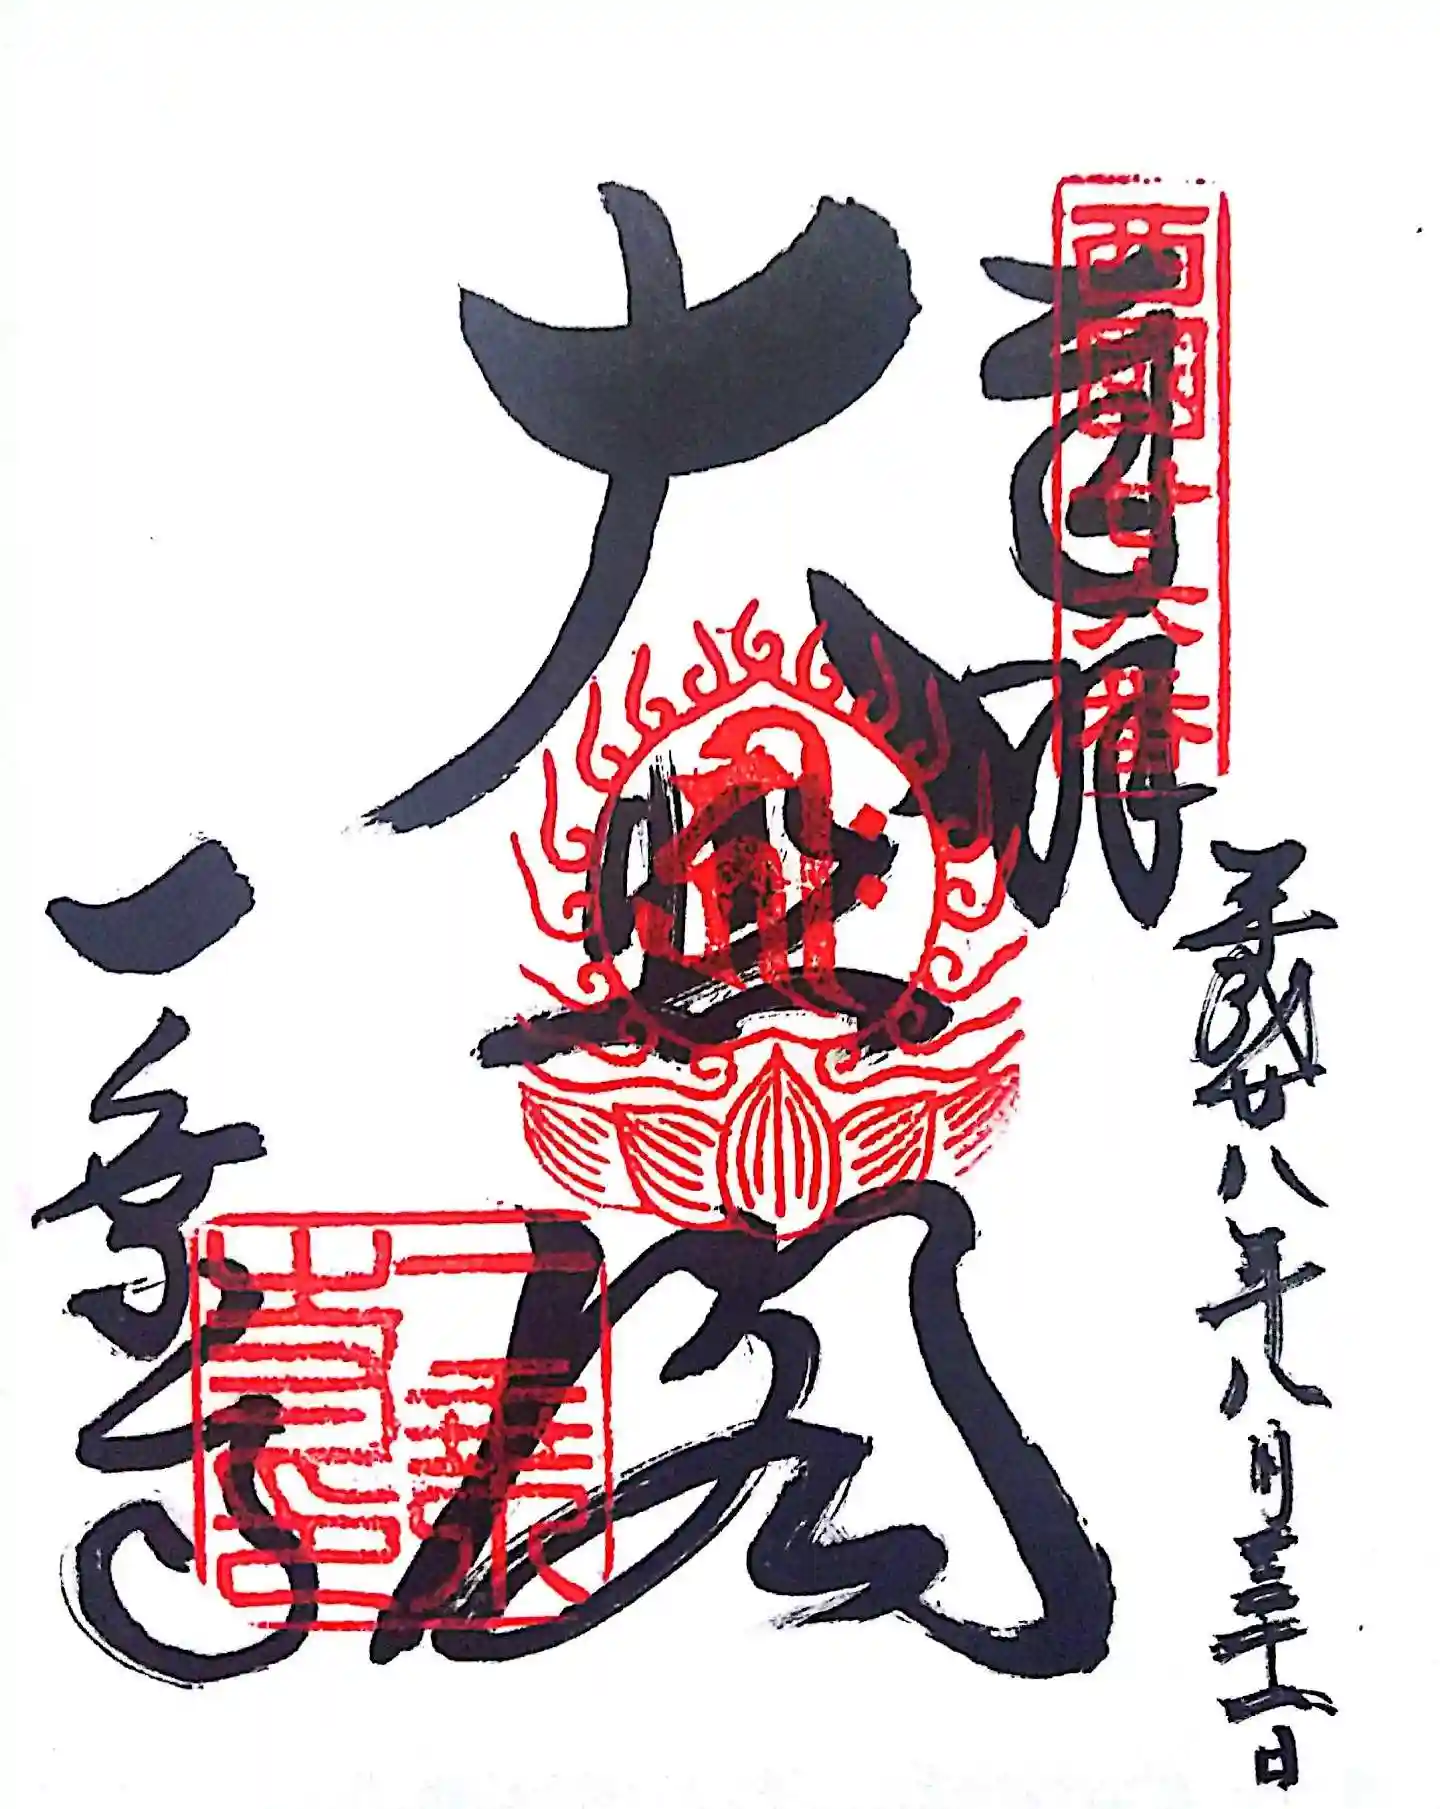 西國廿六番
奉拝
平成廿八年八月三十一日
大悲閣
一乗寺